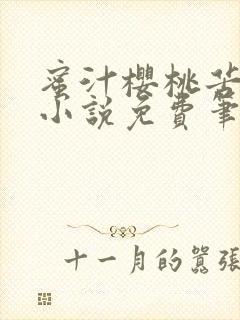 蜜汁櫻桃
小說免費筆
十一月的囂張